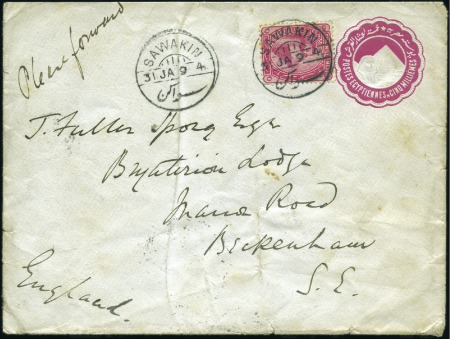 Please forward
SAWAKIN
31 JA 9 4
SAWAKIN
JA 9 4
POSTES EGYPTIENNES CINQ MILLIEMES
J. Fuller Esqre
Lodge
Manor Road
Beckenham
S. E.
England.